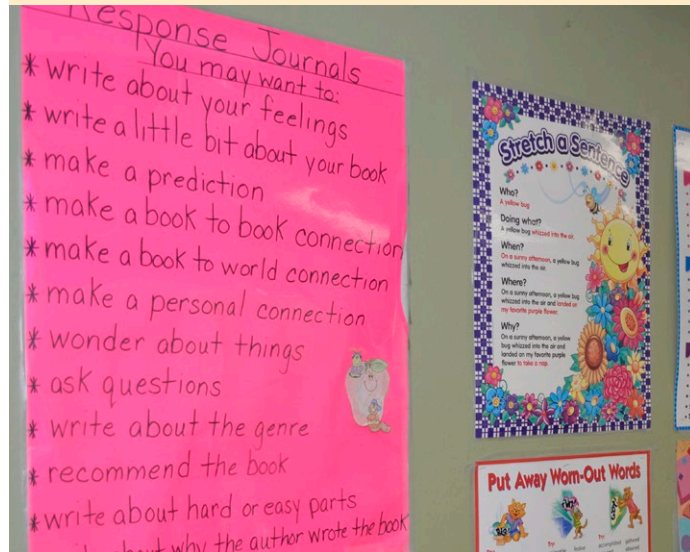 Response Journals
You may want to:
* write about your feelings
* write a little bit about your book
* make a prediction
* make a book to book connection
* make a book to world connection
* make a personal connection
* wonder about things
* ask questions
* write about the genre
* recommend the book
* write about hard or easy parts
about why the author wrote the book
Stretch a Sentence
Who?
A yellow bug
Doing what?
A yellow bug whizzed into the air.
When?
On a sunny afternoon, a yellow bug
whizzed into the air.
Where?
On a sunny afternoon, a yellow bug
whizzed into the air and landed on
my favorite purple flower.
Why?
On a sunny afternoon, a yellow
bug whizzed into the air and
landed on my favorite purple
flower to take a nap.
Put Away Worn-Out Words